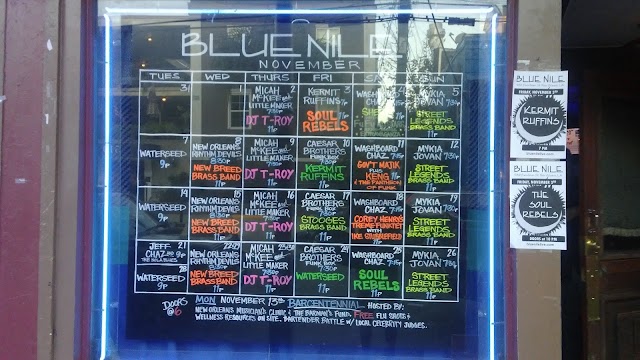 BLUE NILE
NOVEMBER
TUES WED THURS FRI SUN
31 1 2 3 4 5
MICAH MCKEE AND LITTLE MAKER 7:30P
DJ T-ROY 11P
KERMIT RUFFINS 7P
SOUL REBELS 11P
WASHBOARD CHAZ
MYKIA JOVAN 7:30P
STREET LEGENDS BRASS BAND 11P
7 8 9 10 11 12
WATERSEED 9P
NEW ORLEANS RHYTHM DEVILS 8:30P
NEW BREED BRASS BAND 11P
MICAH MCKEE AND LITTLE MAKER 7:30P
DJ T-ROY 11P
CAESAR BROTHERS FUNK BOX
KERMIT RUFFINS 11P
WASHBOARD CHAZ 7P
GOV'T MAJIK PLUS KENG & THE PANTHEON OF FUNK
MYKIA JOVAN 7:30
STREET LEGENDS BRASS BAND 11P
14 15 16 17 18 19
WATERSEED 9P
NEW ORLEANS RHYTHM DEVILS 8:30P
NEW BREED BRASS BAND 11P
MICAH MCKEE AND LITTLE MAKER 7:30P
DJ T-ROY 11P
CAESAR BROTHERS
STOOGES BRASS BAND 11P
WASHBOARD CHAZ 7P
COREY HENRY'S TREME FUNKTET WITH IKE STUBBLEFIELD 11P
MYKIA JOVAN 7:30
STREET LEGENDS BRASS BAND 11P
21 22/29 23/30 24 25 26
JEFF CHAZ
28
WATERSEED 9P
NEW ORLEANS RHYTHM DEVILS
NEW BREED BRASS BAND 11P
MICAH MCKEE AND LITTLE MAKER
DJ T-ROY 11P
CAESAR BROTHERS FUNK BOX
WATERSEED 11P
WASHBOARD CHAZ
SOUL REBELS 11P
MYKIA JOVAN 7:30
STREET LEGENDS BRASS BAND 11P
DOORS @6
MON NOVEMBER 13TH BARCENTENNIAL HOSTED BY:
NEW ORLEANS MUSICIAN'S CLINIC & THE BARMAN'S FUND. FREE FLU SHOTS &
WELLNESS RESOURCES ON SITE. BARTENDER BATTLE W/ LOCAL CELEBRITY JUDGES.
BLUE NILE
FRIDAY, NOVEMBER 3RD
KERMIT RUFFINS
7 PM
BLUE NILE
THE SOUL REBELS
DOORS AT 10 PM